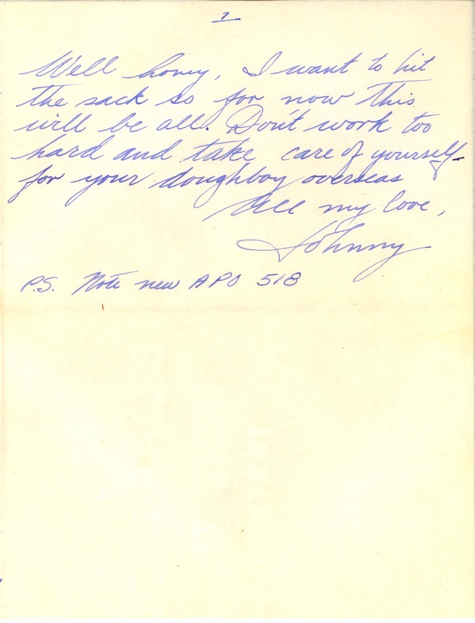 7
Well honey, I want to hit
the sack so for now this
will be all. Don't work too
hard and take care of yourself
for your doughboy overseas
All my love,
Johnny
P.S. Note new APO 518